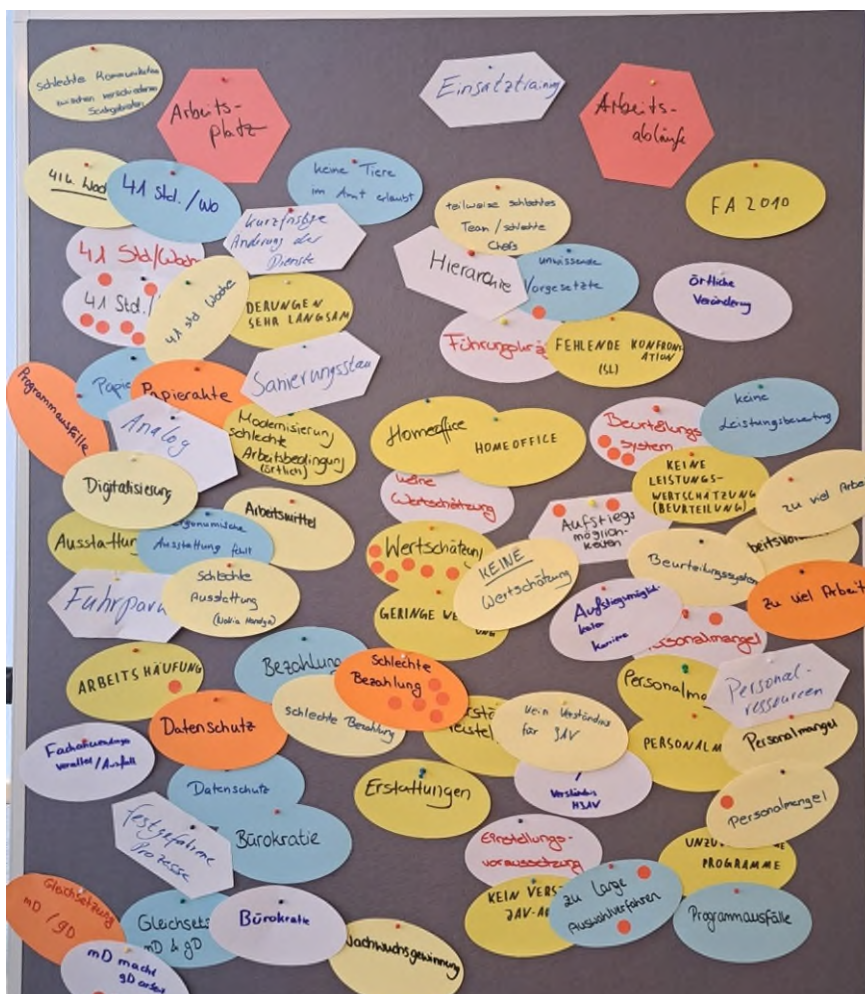 schlechte Kommunikation
zwischen verschiedenen
Sachgebieten
Arbeits-
platz
Einsatztraining
Arbeits-
abläufe
41 Std./Wo
keine Tiere
im Amt erlaubt
FA 2010
kurzfristige
Änderung der
Dienste
teilweise schlechtes
Team / schlechte
Chefs
41 Std/Woch
41 Std.
41 Std Woche
DERUNGEN
SEHR LANGSAM
Hierarchie
unwissende
Vorgesetzte
örtliche
Veränderung
Führungskrä
FEHLENDE KONFRONT-
ATION
(SL)
Programmausfälle
Papie
Papierakte
Sanierungsstau
Analog
Modernisierung
schlechte
Arbeitsbedingung
(örtlich)
Homeoffice
HOMEOFFICE
Beurteilungs
system
keine
Leistungsbewertung
Digitalisierung
Arbeitsmittel
keine
Wertschätzung
KEINE
LEISTUNGS-
WERTSCHÄTZUNG
(BEURTEILUNG)
zu viel Arbe
Ausstattun
ergonomische
Ausstattung fehlt
Aufstiegs
möglich-
keiten
Wertschätzung
KEINE
Wertschätzung
Beurteilungssystem
Fuhrpark
Schlechte
Ausstattung
(Nokia Handys)
GERINGE
UNG
Aufstiegsmöglich
keiten
Karriere
zu viel Arbeit
Personalmangel
ARBEITSHÄUFUNG
Bezahlung
Schlechte
Bezahlung
Personalma
Personal-
ressourcen
Datenschutz
schlechte Bezahlung
kein Verständnis
für JAV
PERSONALM
Personalmangel
Fachanwendungen
veraltet / Ausfall
Datenschutz
Erstattungen
Verständnis
HJAV
Personalmangel
festgefahrene
Prozesse
Bürokratie
Einstellungs-
voraussetzung
PROGRAMME
Gleichsetzung
mD / gD
Gleichsetz
mD & gD
Bürokratie
KEIN VERS
zu lange
Auswahlverfahren
Programmausfälle
mD macht
gD arbeit
Nachwuchsgewinnung